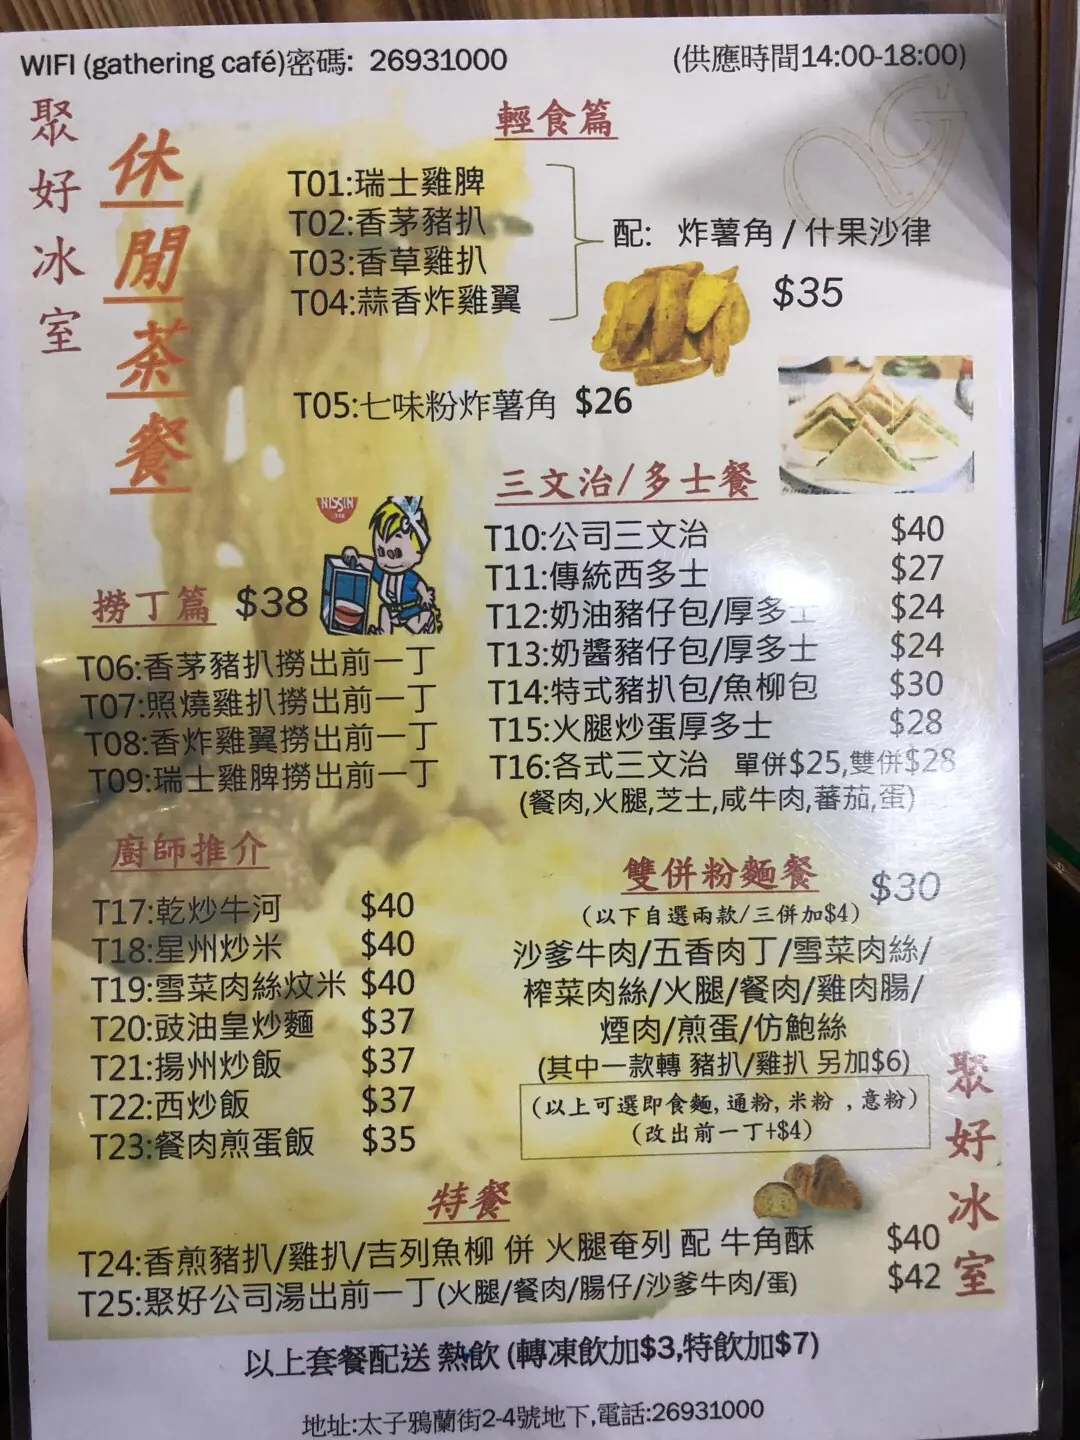 WIFI (gathering café)密碼: 26931000
(供應時間14:00-18:00)
聚好冰室
休閒茶餐
輕食篇
T01:瑞士雞脾
T02:香茅豬扒
T03:香草雞扒
T04:蒜香炸雞翼
配: 炸薯角 / 什果沙律
$35
T05:七味粉炸薯角 $26
NISSIN
撈丁篇 $38
T06:香茅豬扒撈出前一丁
T07:照燒雞扒撈出前一丁
T08:香炸雞翼撈出前一丁
T09:瑞士雞脾撈出前一丁
三文治/多士餐
T10:公司三文治 $40
T11:傳統西多士 $27
T12:奶油豬仔包/厚多士 $24
T13:奶醬豬仔包/厚多士 $24
T14:特式豬扒包/魚柳包 $30
T15:火腿炒蛋厚多士 $28
T16:各式三文治 單併$25,雙併$28
(餐肉,火腿,芝士,咸牛肉,蕃茄,蛋)
廚師推介
T17:乾炒牛河 $40
T18:星州炒米 $40
T19:雪菜肉絲炆米 $40
T20:豉油皇炒麵 $37
T21:揚州炒飯 $37
T22:西炒飯 $37
T23:餐肉煎蛋飯 $35
雙併粉麵餐 $30
(以下自選兩款/三併加$4)
沙爹牛肉/五香肉丁/雪菜肉絲/
榨菜肉絲/火腿/餐肉/雞肉腸/
煙肉/煎蛋/仿鮑絲
(其中一款轉 豬扒/雞扒 另加$6)
(以上可選即食麵, 通粉, 米粉 , 意粉)
(改出前一丁+$4)
聚好冰室
特餐
T24:香煎豬扒/雞扒/吉列魚柳 併 火腿奄列 配 牛角酥 $40
T25:聚好公司湯出前一丁(火腿/餐肉/腸仔/沙爹牛肉/蛋) $42
以上套餐配送 熱飲 (轉凍飲加$3,特飲加$7)
地址:太子鴉蘭街2-4號地下,電話:26931000